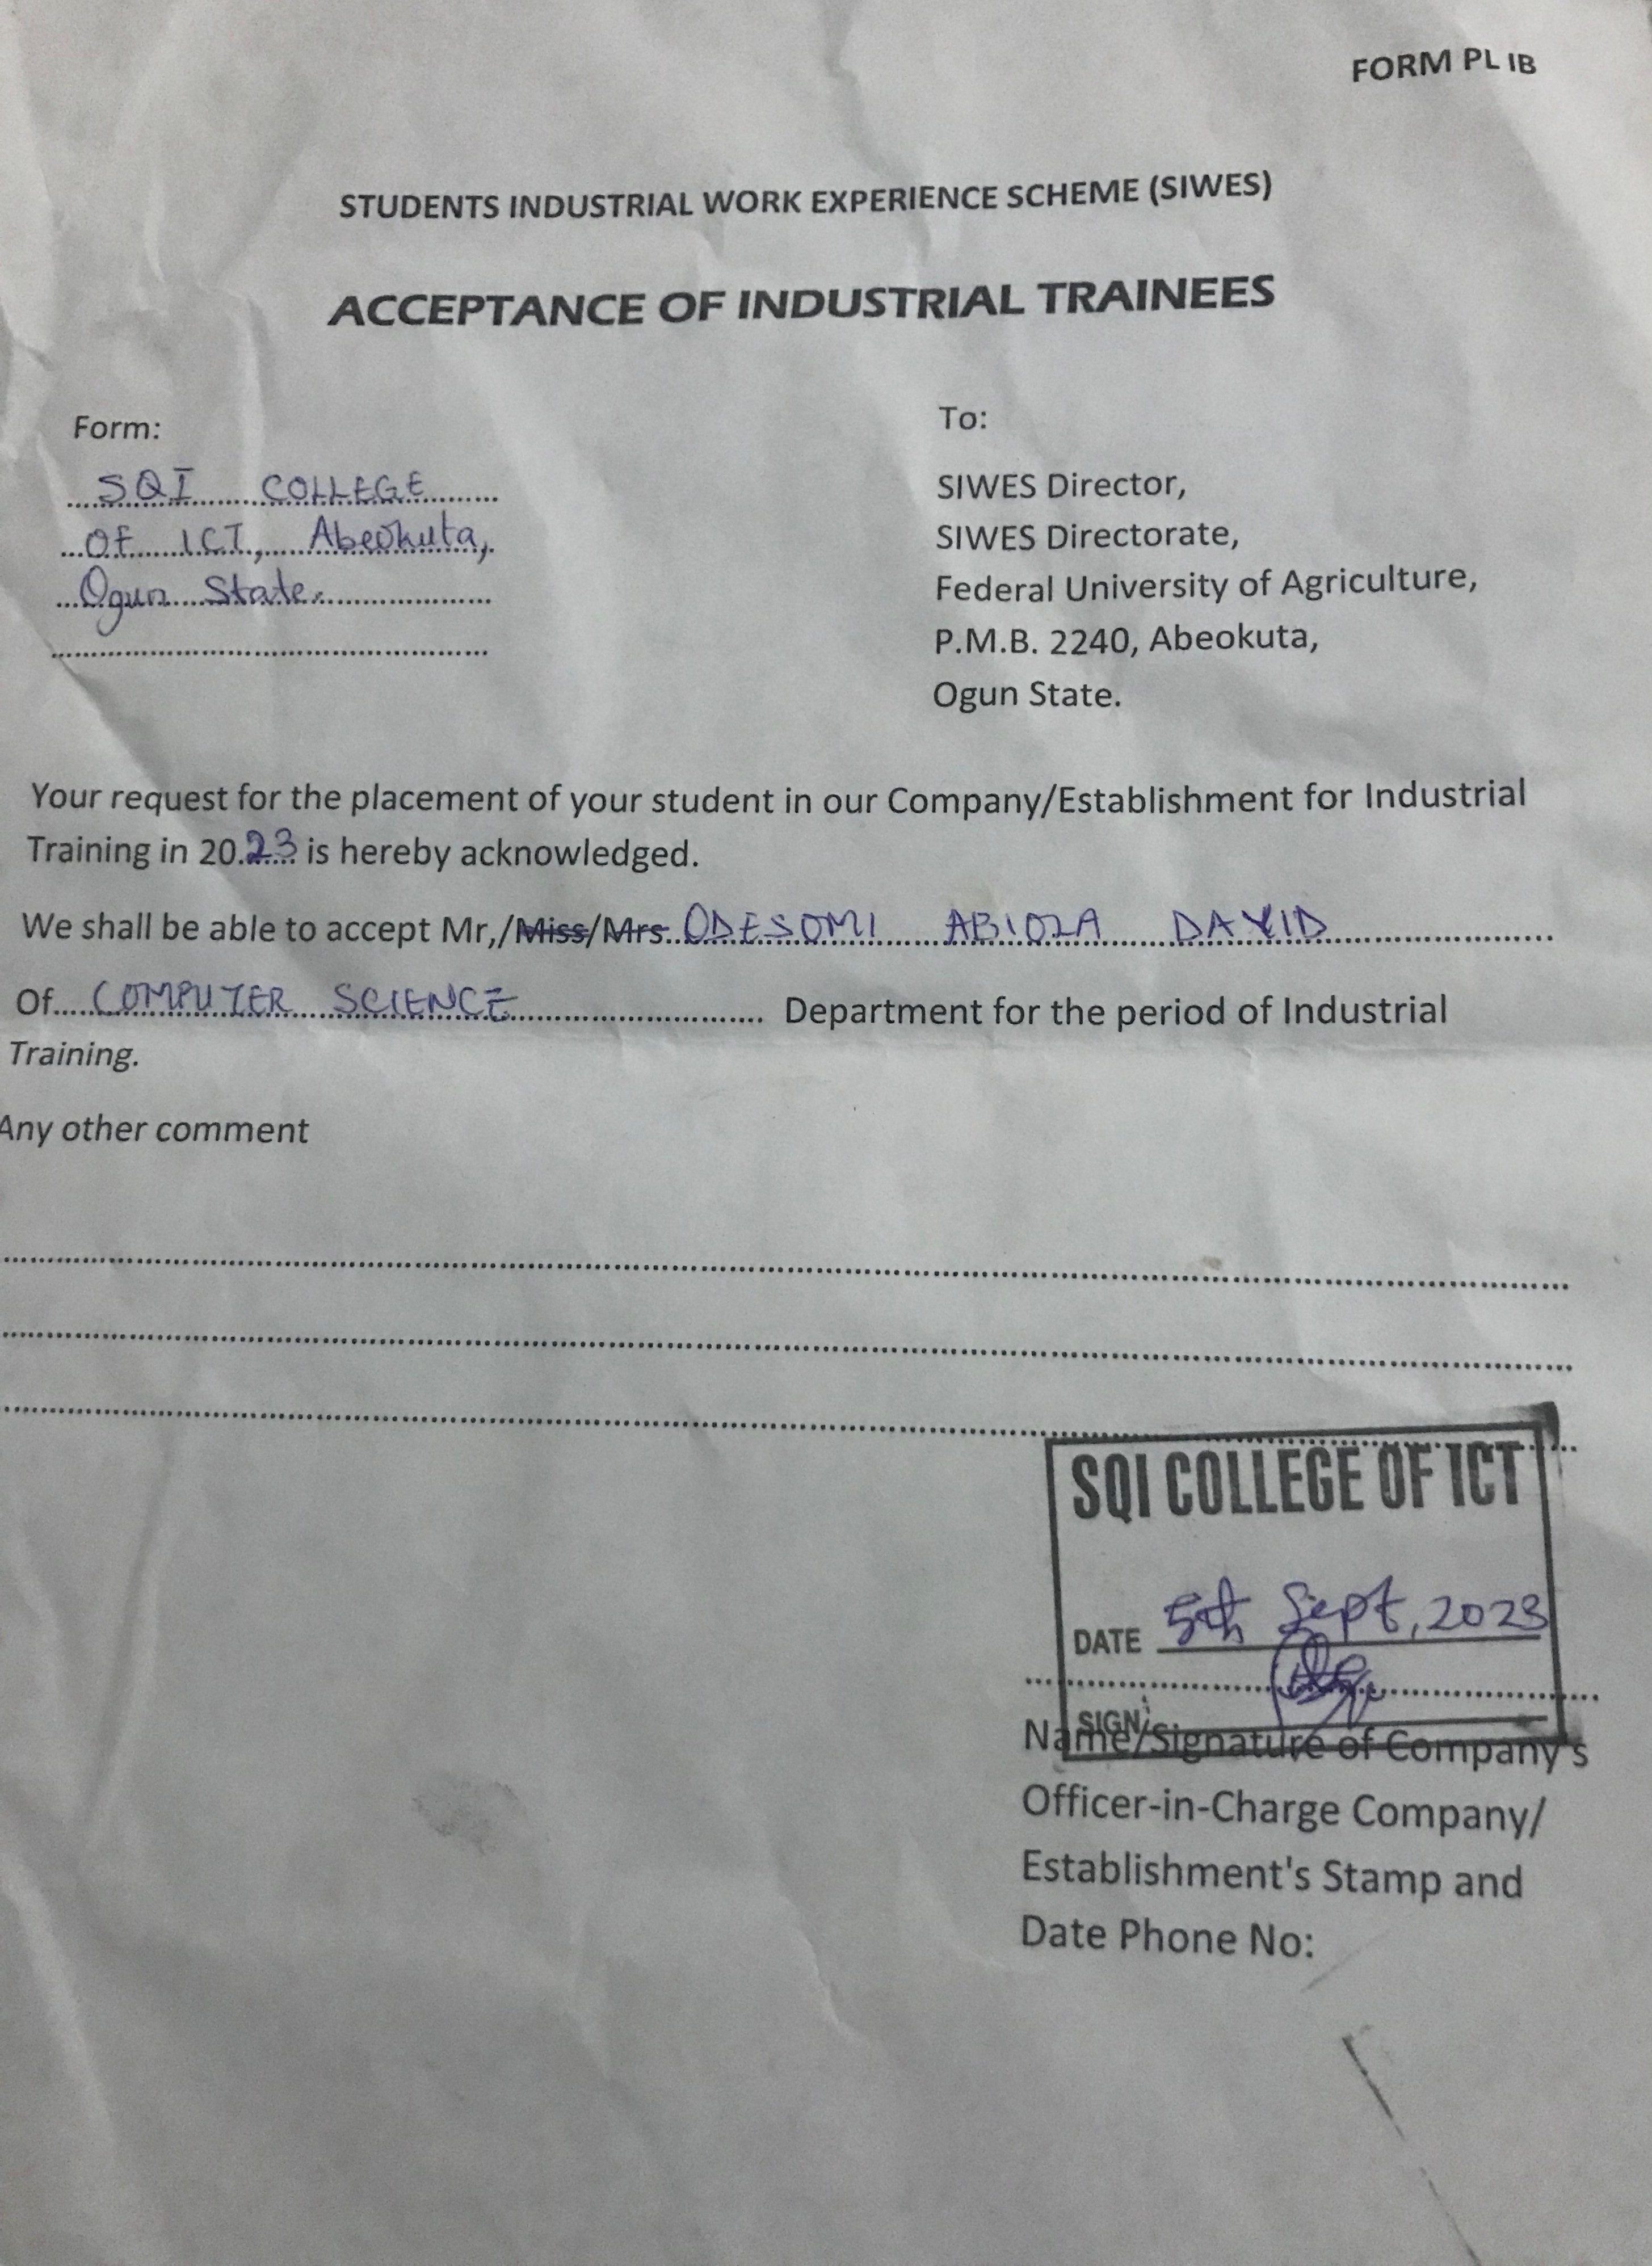 FORM PL IB
STUDENTS INDUSTRIAL WORK EXPERIENCE SCHEME (SIWES)
ACCEPTANCE OF INDUSTRIAL TRAINEES
Form:
SQI COLLEGE
OF ICT, Abeokuta,
Ogun State.
To:
SIWES Director,
SIWES Directorate,
Federal University of Agriculture,
P.M.B. 2240, Abeokuta,
Ogun State.
Your request for the placement of your student in our Company/Establishment for Industrial
Training in 20.23 is hereby acknowledged.
We shall be able to accept Mr,/Miss/Mrs ODESOMI ABIOLA DAVID
Of COMPUTER SCIENCE Department for the period of Industrial
Training.
Any other comment
SQI COLLEGE OF ICT
DATE 5th Sept, 2023
SIGN
Name/Signature of Company's
Officer-in-Charge Company/
Establishment's Stamp and
Date Phone No: